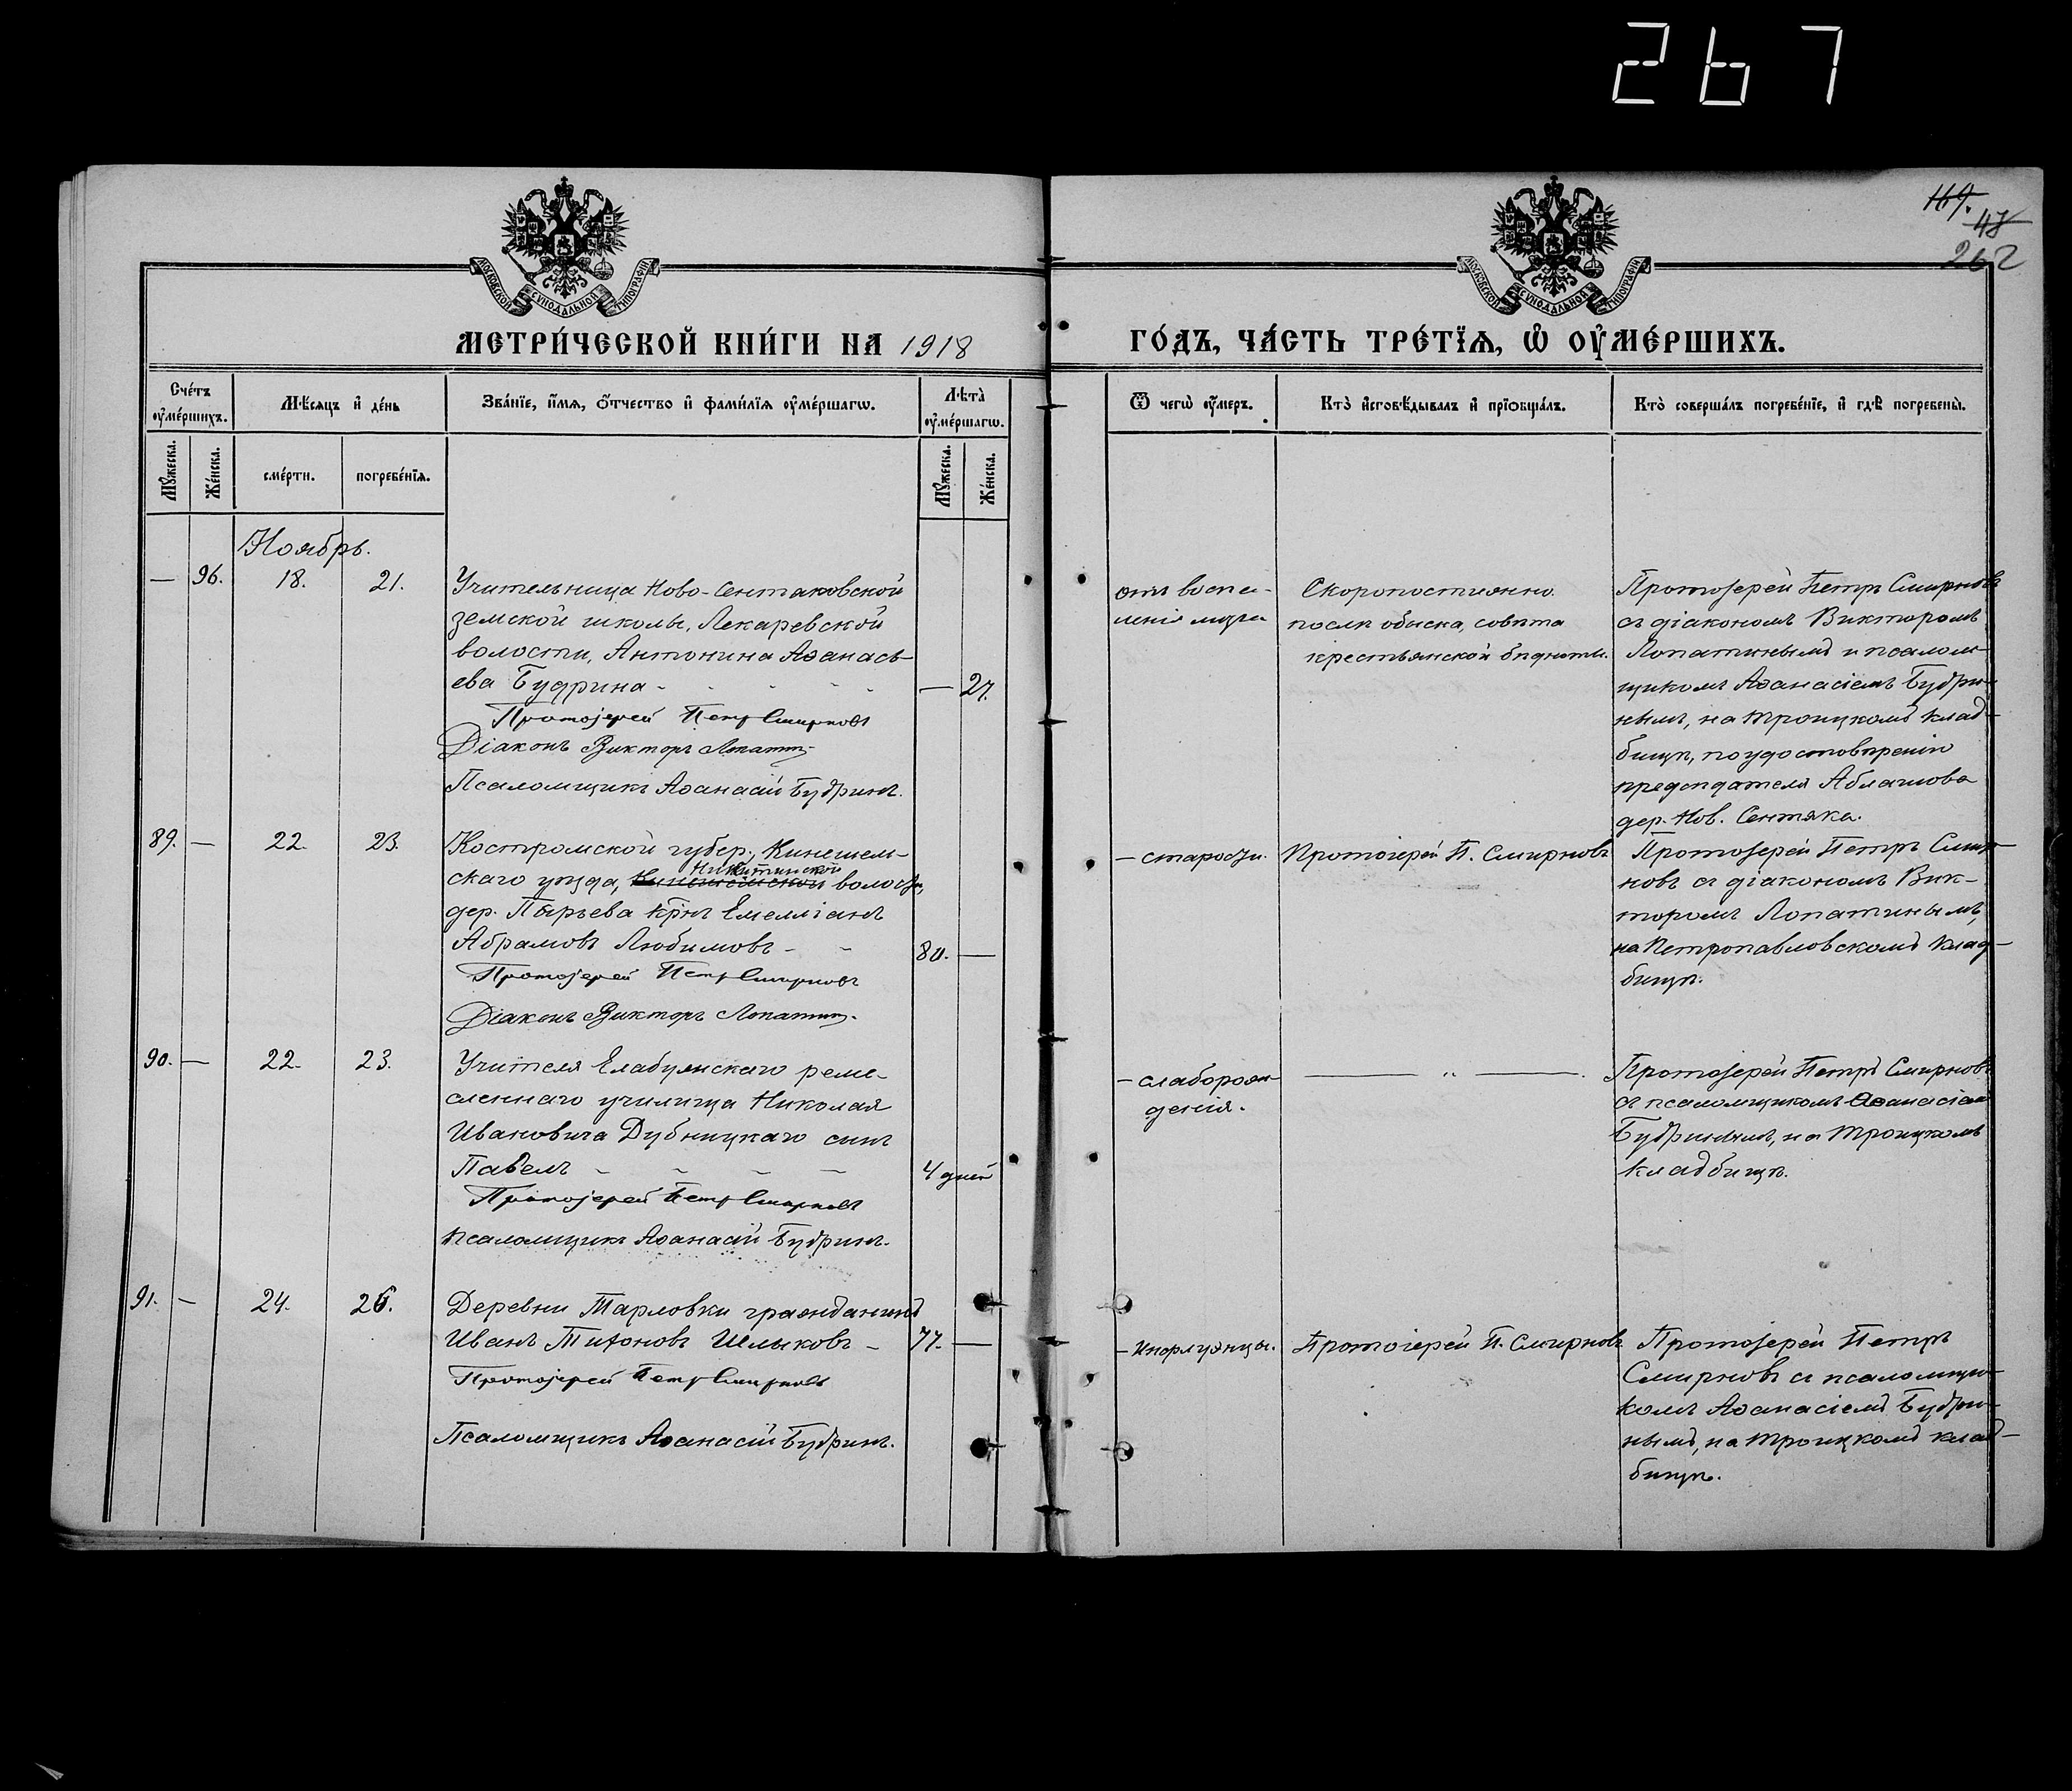 267
169.
48
262
МОСКОВСКОЙ СѴНОДАЛЬНОЙ ТИПОГРАФІИ
МОСКОВСКОЙ СѴНОДАЛЬНОЙ ТИПОГРАФІИ
МЕТРИ́ЧЕСКОЙ КНИ́ГИ НА 1918
ГО́ДЪ, ЧА́СТЬ ТРЕ́ТЇѦ, Ѡ҆ ОУ҆МЕ́РШИХЪ.
Сче́тъ оу҆ме́ршихъ.
Мѣ́сяцъ и҆ де́нь
Зва́нїе, и҆́мѧ, ѻ҆́тчество и҆ фамѝлїѧ оу҆ме́ршагѡ.
Лѣта̀ оу҆ме́ршагѡ.
Ѿ чегѡ̀ оу҆́меръ.
Кто̀ и҆сповѣ́дывалъ и҆ прїѻбща́лъ.
Кто̀ соверша́лъ погребе́нїе, и҆ гдѣ̀ погребены̀.
Мꙋ́жеска.
Же́нска.
сме́рти.
погребе́нїѧ.
Мꙋ́жеска.
Же́нска.
Ноябрь.
— 96. 18. 21.
Учительница Ново-Сентяковской
земской школы, Лекаревской
волости, Антонина Аѳанась-
ева Будрина - — 27.
Протоіерей Петръ Смирновъ
Діаконъ Викторъ Лопатин
Псаломщикъ Аѳанасій Будринъ.
отъ воспа-
ленія мозга
Скоропостижно.
послѣ обыска, совѣта
крестьянской бѣдноты.
Протоіерей Петръ Смирновъ
съ діакономъ Викторомъ
Лопатинымъ и псалом-
щикомъ Аѳанасіемъ Будри-
нымъ, на Троицкомъ клад-
бищѣ, по удостовѣренію
предсѣдателя Аблашова
дер. Нов. Сентяка.
89. — 22. 23.
Костромской губер., Кинешем-
Никитинской
скаго уѣзда, волости,
дер. Пырьева крнъ Емелліанъ
Абрамовъ Любимовъ - - 80. —
Протоіерей Петръ Смирновъ
Діаконъ Викторъ Лопатин
— старости.
Протоіерей П. Смирновъ
Протоіерей Петръ Смир-
новъ съ діакономъ Вик-
торомъ Лопатинымъ,
на Петропавловскомъ клад-
бищѣ.
90. — 22. 23.
Учителя Елабужскаго реме-
сленнаго училища Николая
Ивановича Дубницкаго сынъ
Павелъ - - - - 4 дней
Протоіерей Петръ Смирновъ
Псаломщикъ Аѳанасій Будринъ.
— слаборож-
денія.
— „ —
Протоіерей Петръ Смирновъ
съ псаломщикомъ Аѳанасіем
Будринымъ, на Троицкомъ
кладбищѣ.
91. — 24. 26.
Деревни Тарловки гражданинъ
Иванъ Тихоновъ Шлыковъ - 77. —
Протоіерей Петръ Смирновъ
Псаломщикъ Аѳанасій Будринъ.
— инфлуэнцы.
Протоіерей П. Смирновъ
Протоіерей Петръ
Смирновъ съ псаломщи-
комъ Аѳанасіемъ Будри-
нымъ, на Троицкомъ клад-
бищѣ.